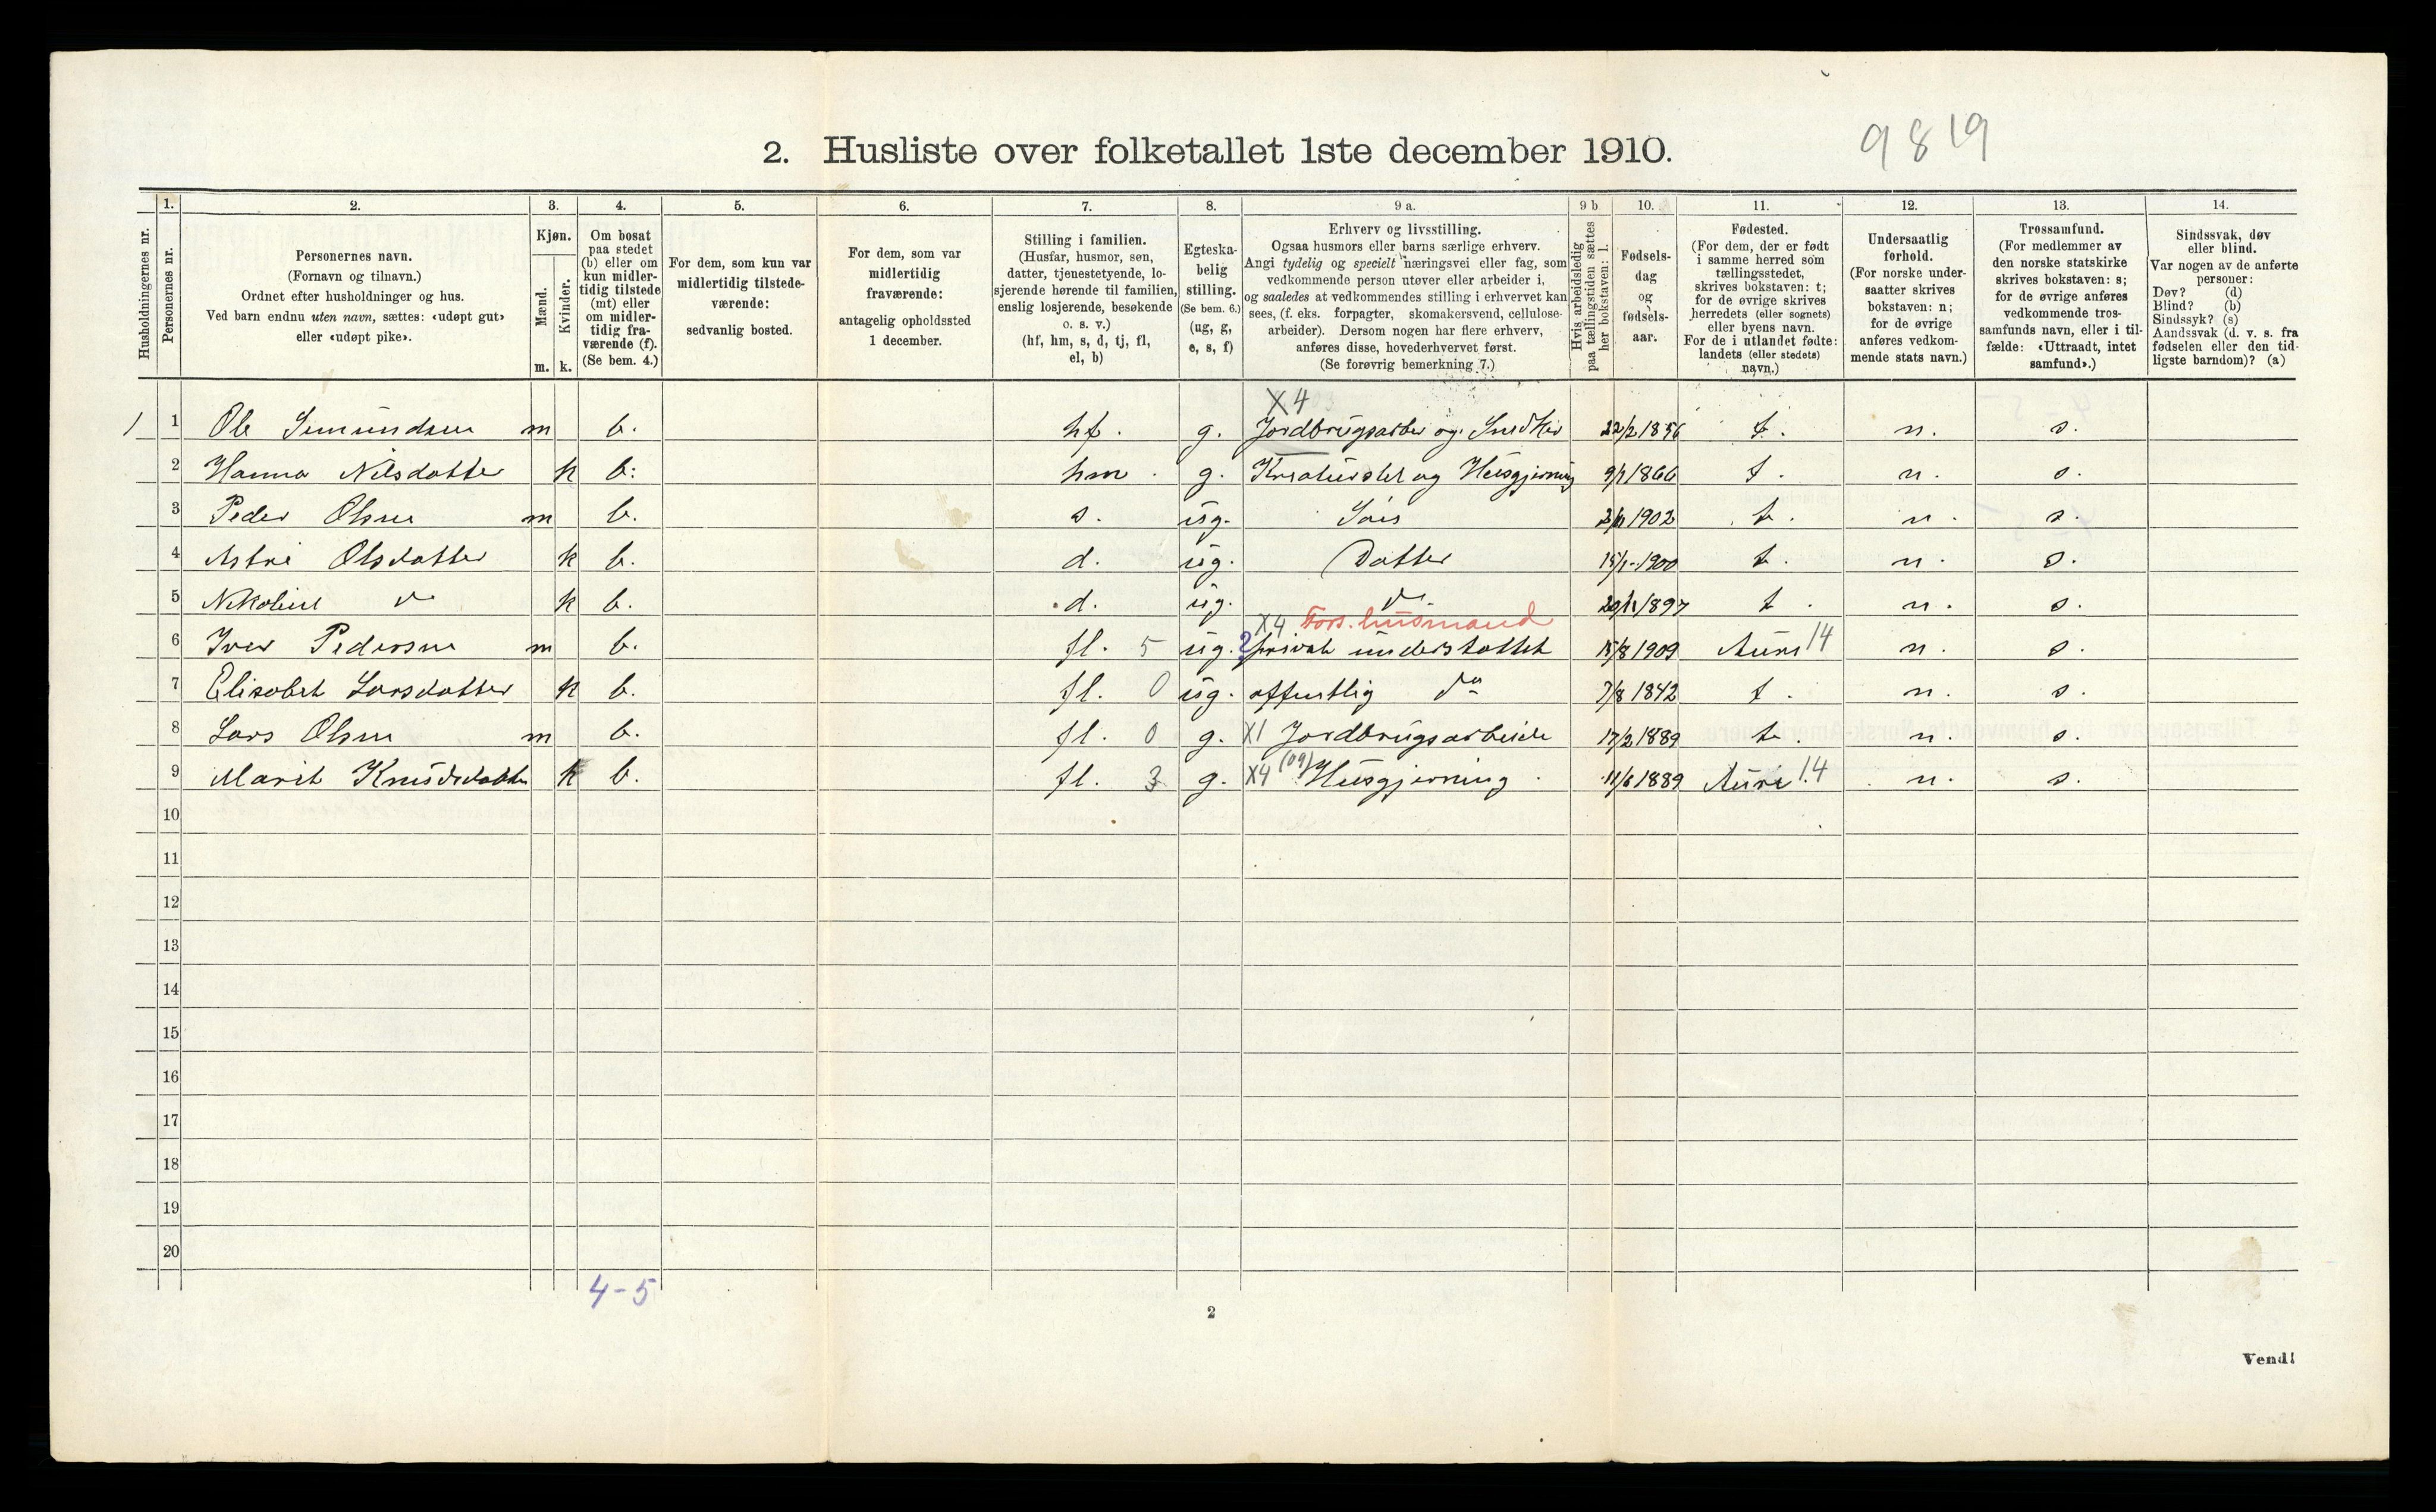 9819
2. Husliste over folketallet 1ste december 1910.
Husholdningernes nr.
1.
Personernes nr.
2.
Personernes navn.
(Fornavn og tilnavn.)
Ordnet efter husholdninger og hus.
Ved barn endnu uten navn, sættes: «udøpt gut»
eller «udøpt pike».
3.
Kjøn.
Mænd.
Kvinder.
m. k.
4.
Om bosat
paa stedet
(b) eller om
kun midler-
tidig tilstede
(mt) eller
om midler-
tidig fra-
værende (f).
(Se bem. 4.)
5.
For dem, som kun var
midlertidig tilstede-
værende:
sedvanlig bosted.
6.
For dem, som var
midlertidig
fraværende:
antagelig opholdssted
1 december.
7.
Stilling i familien.
(Husfar, husmor, søn,
datter, tjenestetyende, lo-
sjerende hørende til familien,
enslig losjerende, besøkende
o. s. v.)
(hf, hm, s, d, tj, fl,
el, b)
8.
Egteska-
belig
stilling.
(Se bem. 6.)
(ug, g,
e, s, f)
9 a.
Erhverv og livsstilling.
Ogsaa husmors eller barns særlige erhverv.
Angi tydelig og specielt næringsvei eller fag, som
vedkommende person utøver eller arbeider i,
og saaledes at vedkommendes stilling i erhvervet kan
sees, (f. eks. forpagter, skomakersvend, cellulose-
arbeider). Dersom nogen har flere erhverv,
anføres disse, hovederhvervet først.
(Se forøvrig bemerkning 7.)
9 b
Hvis arbeidsledig
paa tællingstiden sættes
her bokstaven: l.
10.
Fødsels-
dag
og
fødsels-
aar.
11.
Fødested.
(For dem, der er født
i samme herred som
tællingsstedet,
skrives bokstaven: t;
for de øvrige skrives
herredets (eller sognets)
eller byens navn.
For de i utlandet fødte:
landets (eller stedets)
navn.)
12.
Undersaatlig
forhold.
(For norske under-
saatter skrives
bokstaven: n;
for de øvrige
anføres vedkom-
mende stats navn.)
13.
Trossamfund.
(For medlemmer av
den norske statskirke
skrives bokstaven: s;
for de øvrige anføres
vedkommende tros-
samfunds navn, eller i til-
fælde: «Uttraadt, intet
samfund».)
14.
Sindssvak, døv
eller blind.
Var nogen av de anførte
personer:
Døv? (d)
Blind? (b)
Sindssyk? (s)
Aandssvak (d. v. s. fra
fødselen eller den tid-
ligste barndom)? (a)
X4
1 1 Ole m b. hf. g. og 22/2 1856 t. n. s.
2 Hanna Nilsdatter k b. hm. g. og Husgjerning 9/1 1866 t. n. s.
3 Peder Olsen m b. s. ug. 1902 t. n. s.
4 Astri Olsdatter k b. d. ug. Datter 15/1 1900 t. n. s.
5 do k b. d. ug. do 1897 t. n. s.
X4 Fors. husmand
6 Iver Pedersen m b. fl. 5 ug. 2 privat understøttet 15/8 1909 Aure 14 n. s.
7 Elisabet Larsdatter k b. fl. 0 ug. offentlig do 7/8 1842 t. n. s.
8 Lars Olsen m b. fl. 0 g. X1 Jordbrugsarbeide 17/2 1889 t. n. s.
9 Marit Knudsdatter k b. fl. 3 g. X4 (09) Husgjerning 11/6 1889 Aure 14 n. s.
10
11
12
13
14
15
16
17
18
19
20
4-5
2
Vend!